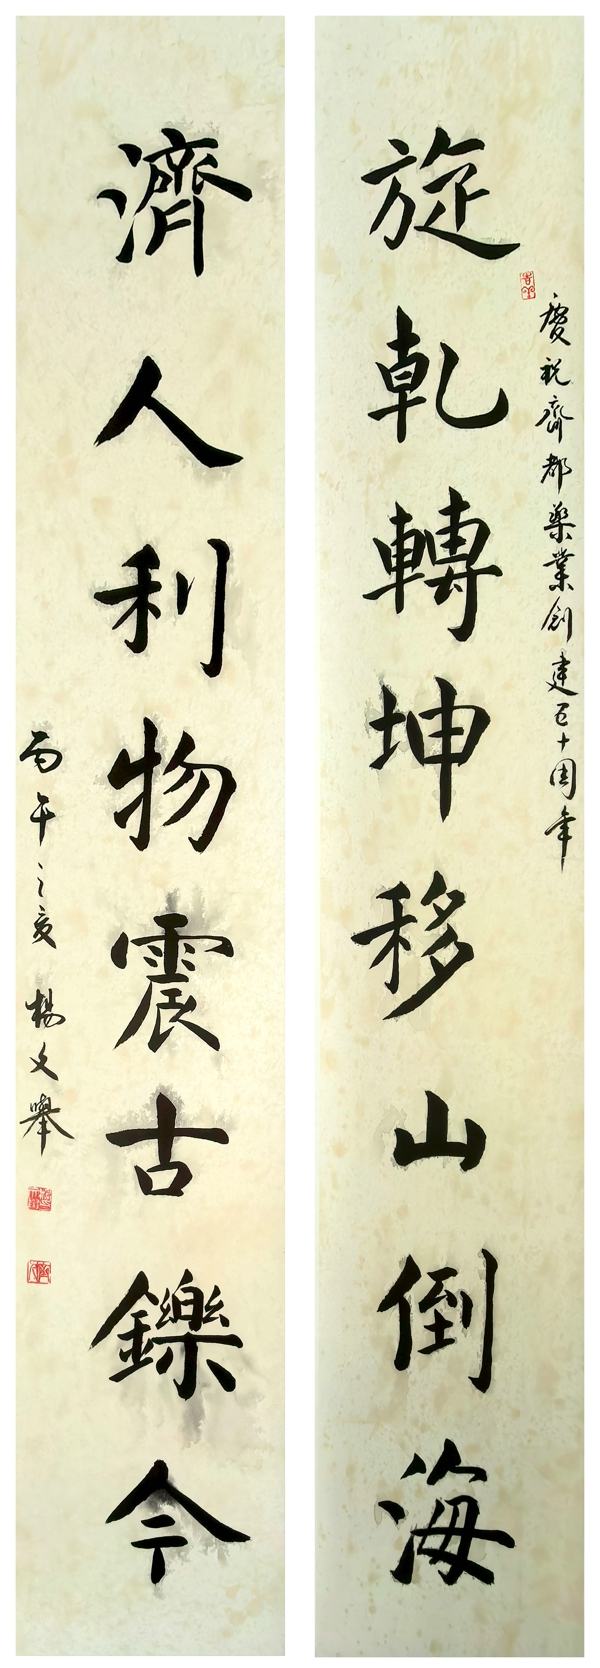 旋乾轉坤移山倒海
慶祝齊都藥業創建五十周年
濟人利物震古鑠今
丙午之夏 楊文舉